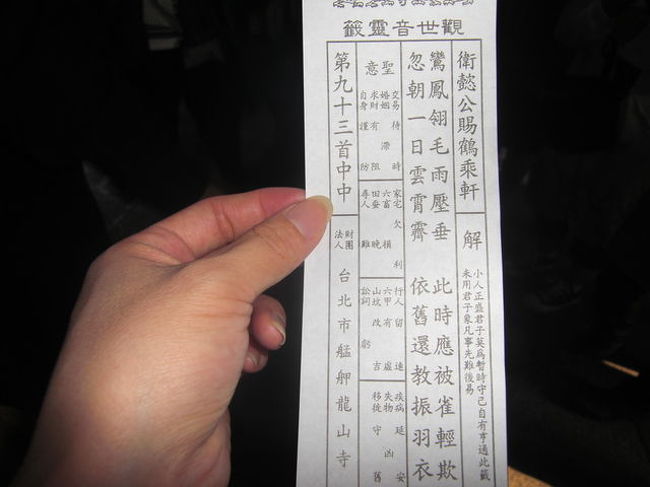 觀世音靈籤
衛懿公賜鶴乘軒
解
小人正盛君子莫為暫時守己自有亨通此籤
未用君子象凡事先難後易
鸞鳳翎毛雨壓垂　此時應被雀輕欺
忽朝一日雲霄霽　依舊還教振羽衣
聖意
交易待時
婚姻滯
求財有阻
自身謹防
家宅欠利
六畜損
田蚕晚
尋人難
行人留連
六甲有虛
山坟改吉
訟詞虧
疾病延安
失物凶
移徙守舊
第九十三首中中
財團法人
台北市艋舺龍山寺